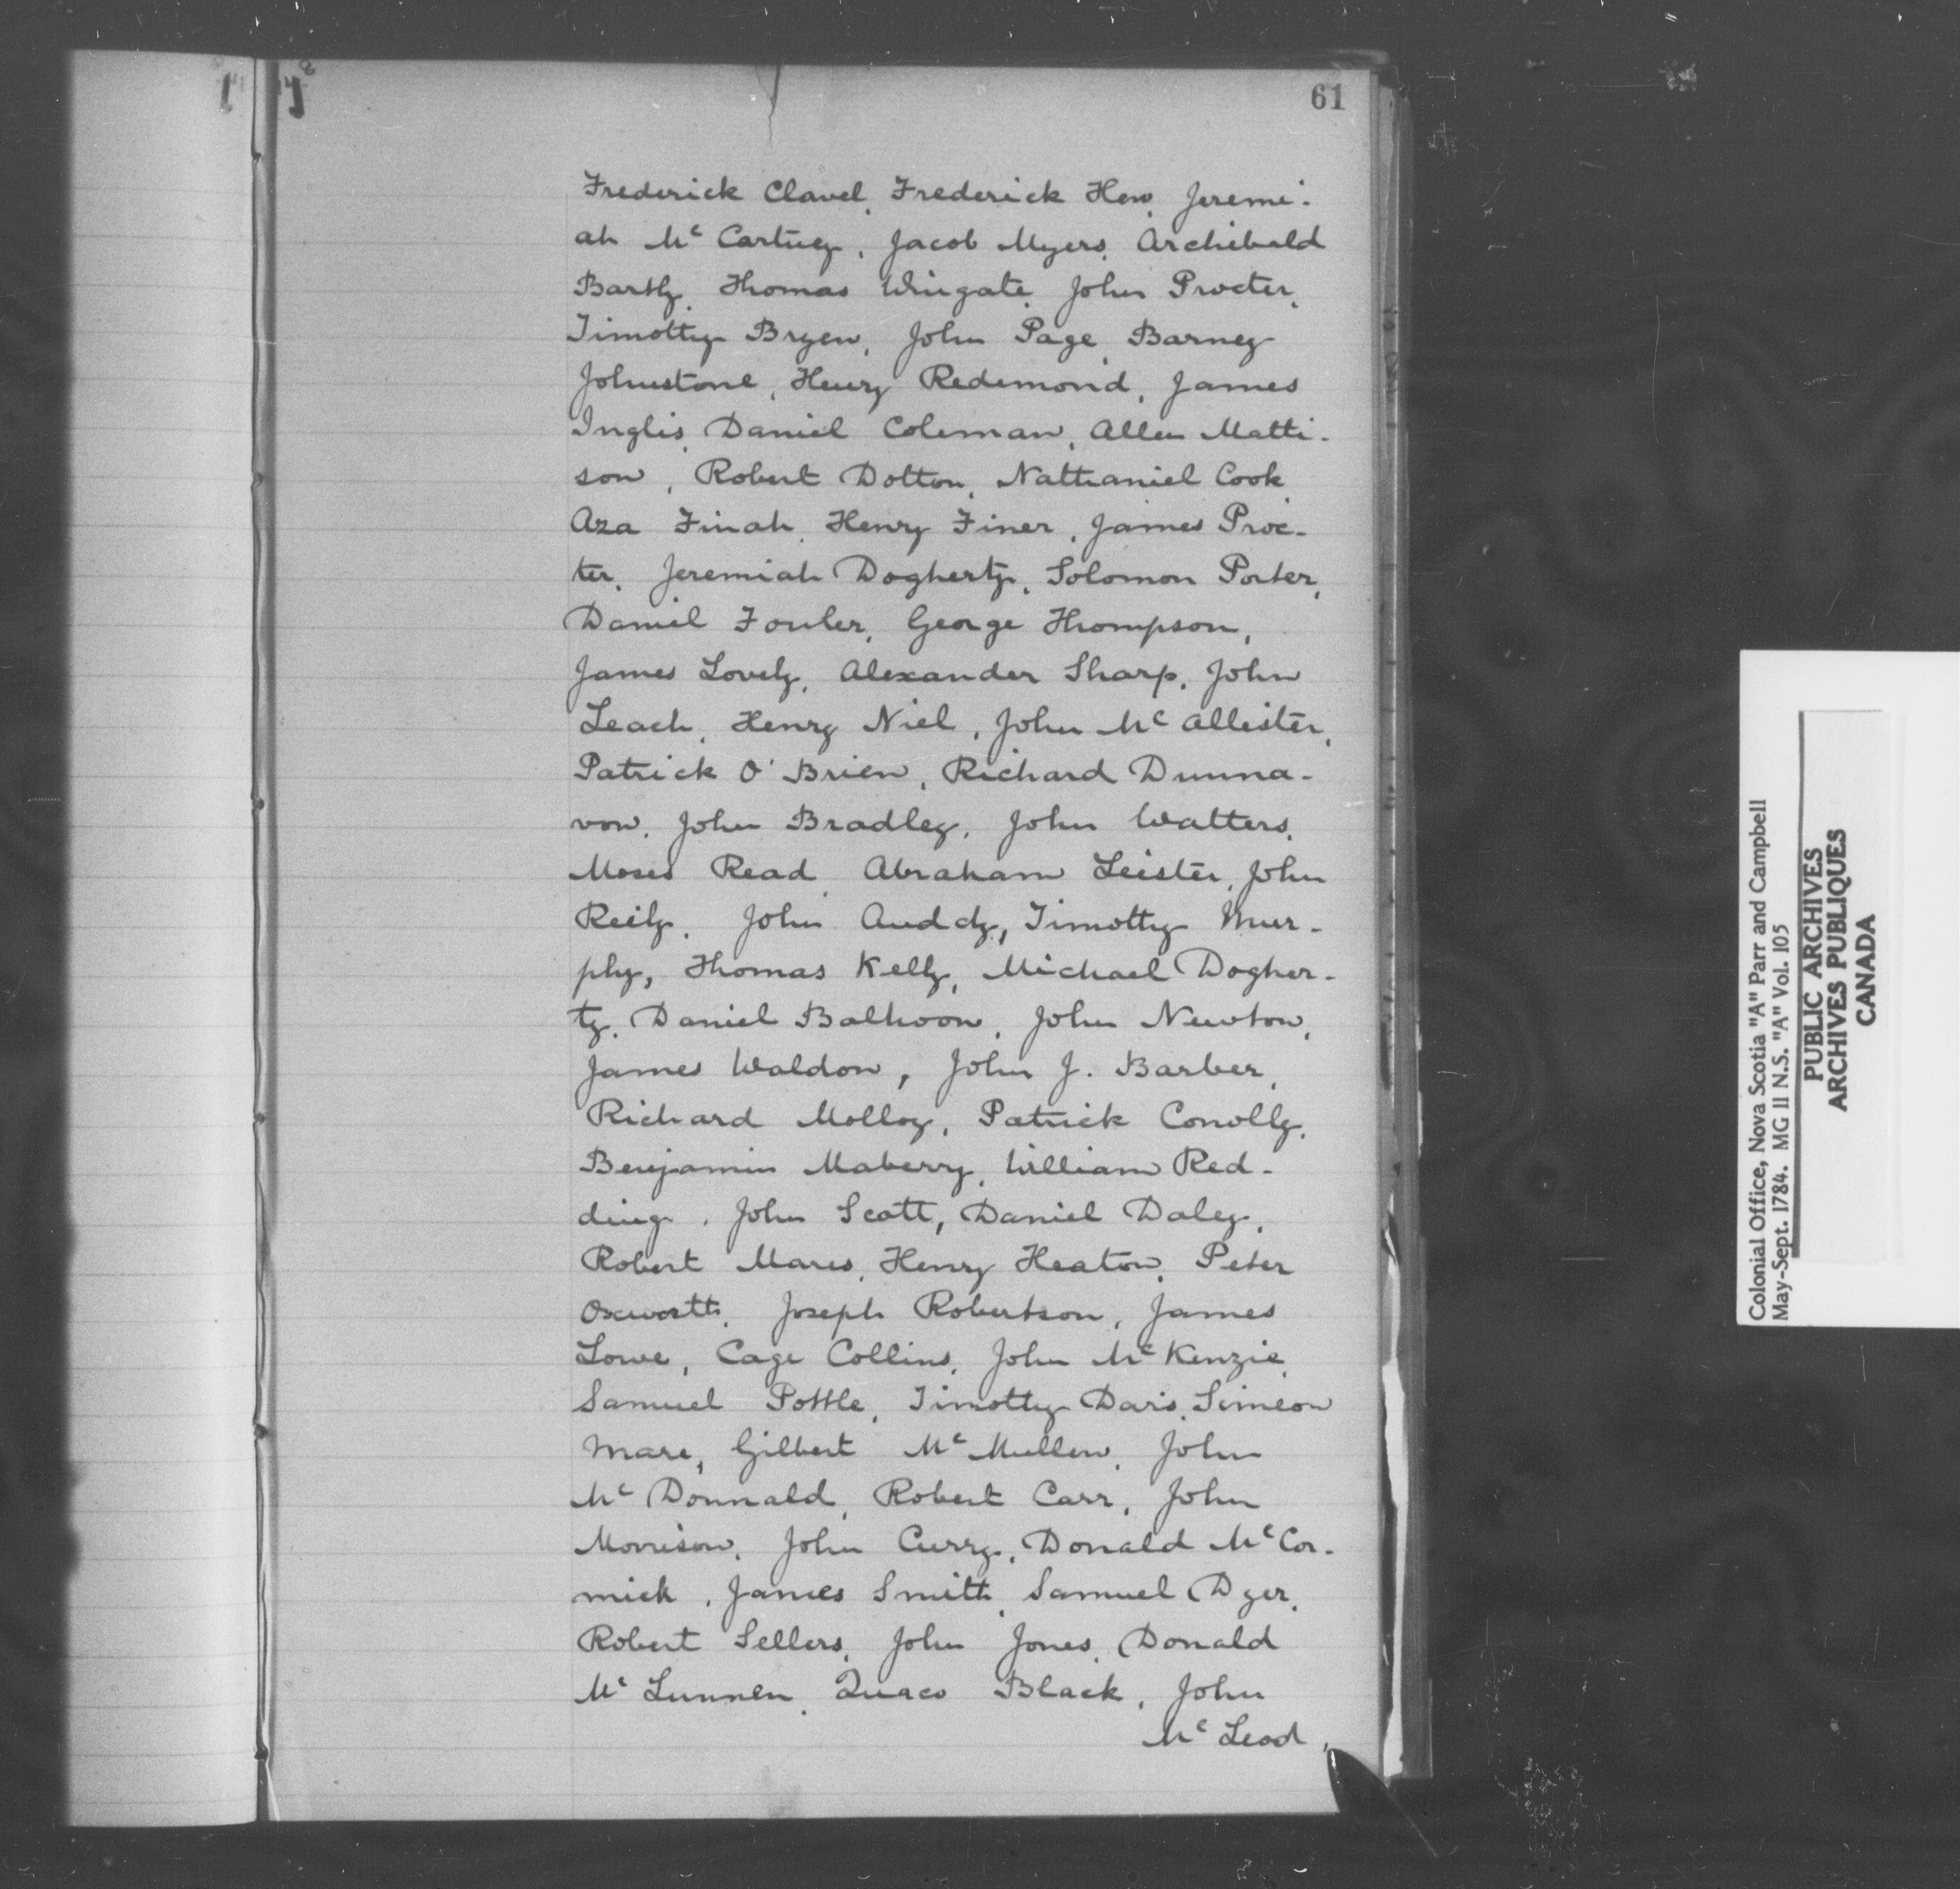 61
Frederick Clavel, Frederick Hew, Jeremi-
ah Mc Cartuy, Jacob Myers, Archibald
Barth, Thomas Wingate, John Procter,
Timothy Bryen, John Page, Barney
Johnstone, Henry Redemond, James
Inglis, Daniel Coleman, Allen Matti-
son, Robert Dotton, Nathaniel Cook,
Aza Finah, Henry Finer, James Proc-
ter, Jeremiah Dogherty, Solomon Porter,
Daniel Fowler, George Thompson,
James Lovely, Alexander Sharp, John
Leach, Henry Niel, John Mc Allister,
Patrick O'Brien, Richard Dunna-
von, John Bradley, John Watters,
Moses Read, Abraham Leister, John
Reily, John Auddy, Timothy Mur-
phy, Thomas Kelly, Michael Dogher-
ty, Daniel Balhoon, John Newton,
James Waldon, John J. Barber,
Richard Molloy, Patrick Conolly,
Benjamin Maberry, William Red-
ding, John Scott, Daniel Daley,
Robert Mares, Henry Heaton, Peter
Oxworth, Joseph Robertson, James
Lowe, Cage Collins, John McKenzie,
Samuel Pottle, Timothy Davis, Simeon
Mare, Gilbert Mc Mullen, John
Mc Donnald, Robert Carr, John
Morrison, John Curry, Donald McCor-
mick, James Smith, Samuel Dyer,
Robert Sellers, John Jones, Donald
Mc Lunnen, Quaco Black, John
Mc Leod,
Colonial Office, Nova Scotia "A" Parr and Campbell
May-Sept. 1784. MG 11 N.S. "A" Vol. 105
PUBLIC ARCHIVES
ARCHIVES PUBLIQUES
CANADA